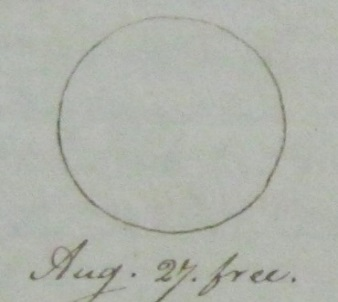 Aug. 27. free.